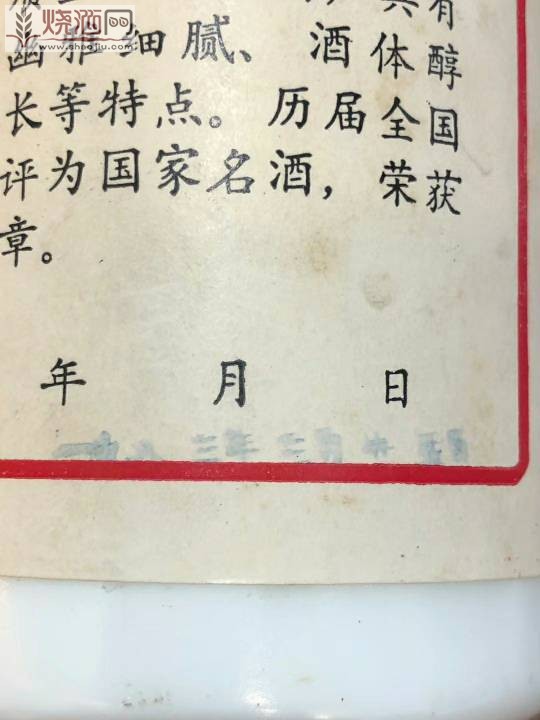 烧酒网
www.shaojiu.com
具有
幽雅细腻、酒体醇
长等特点。历届全国
评为国家名酒，荣获
章。
年 月 日
一九八三年三月